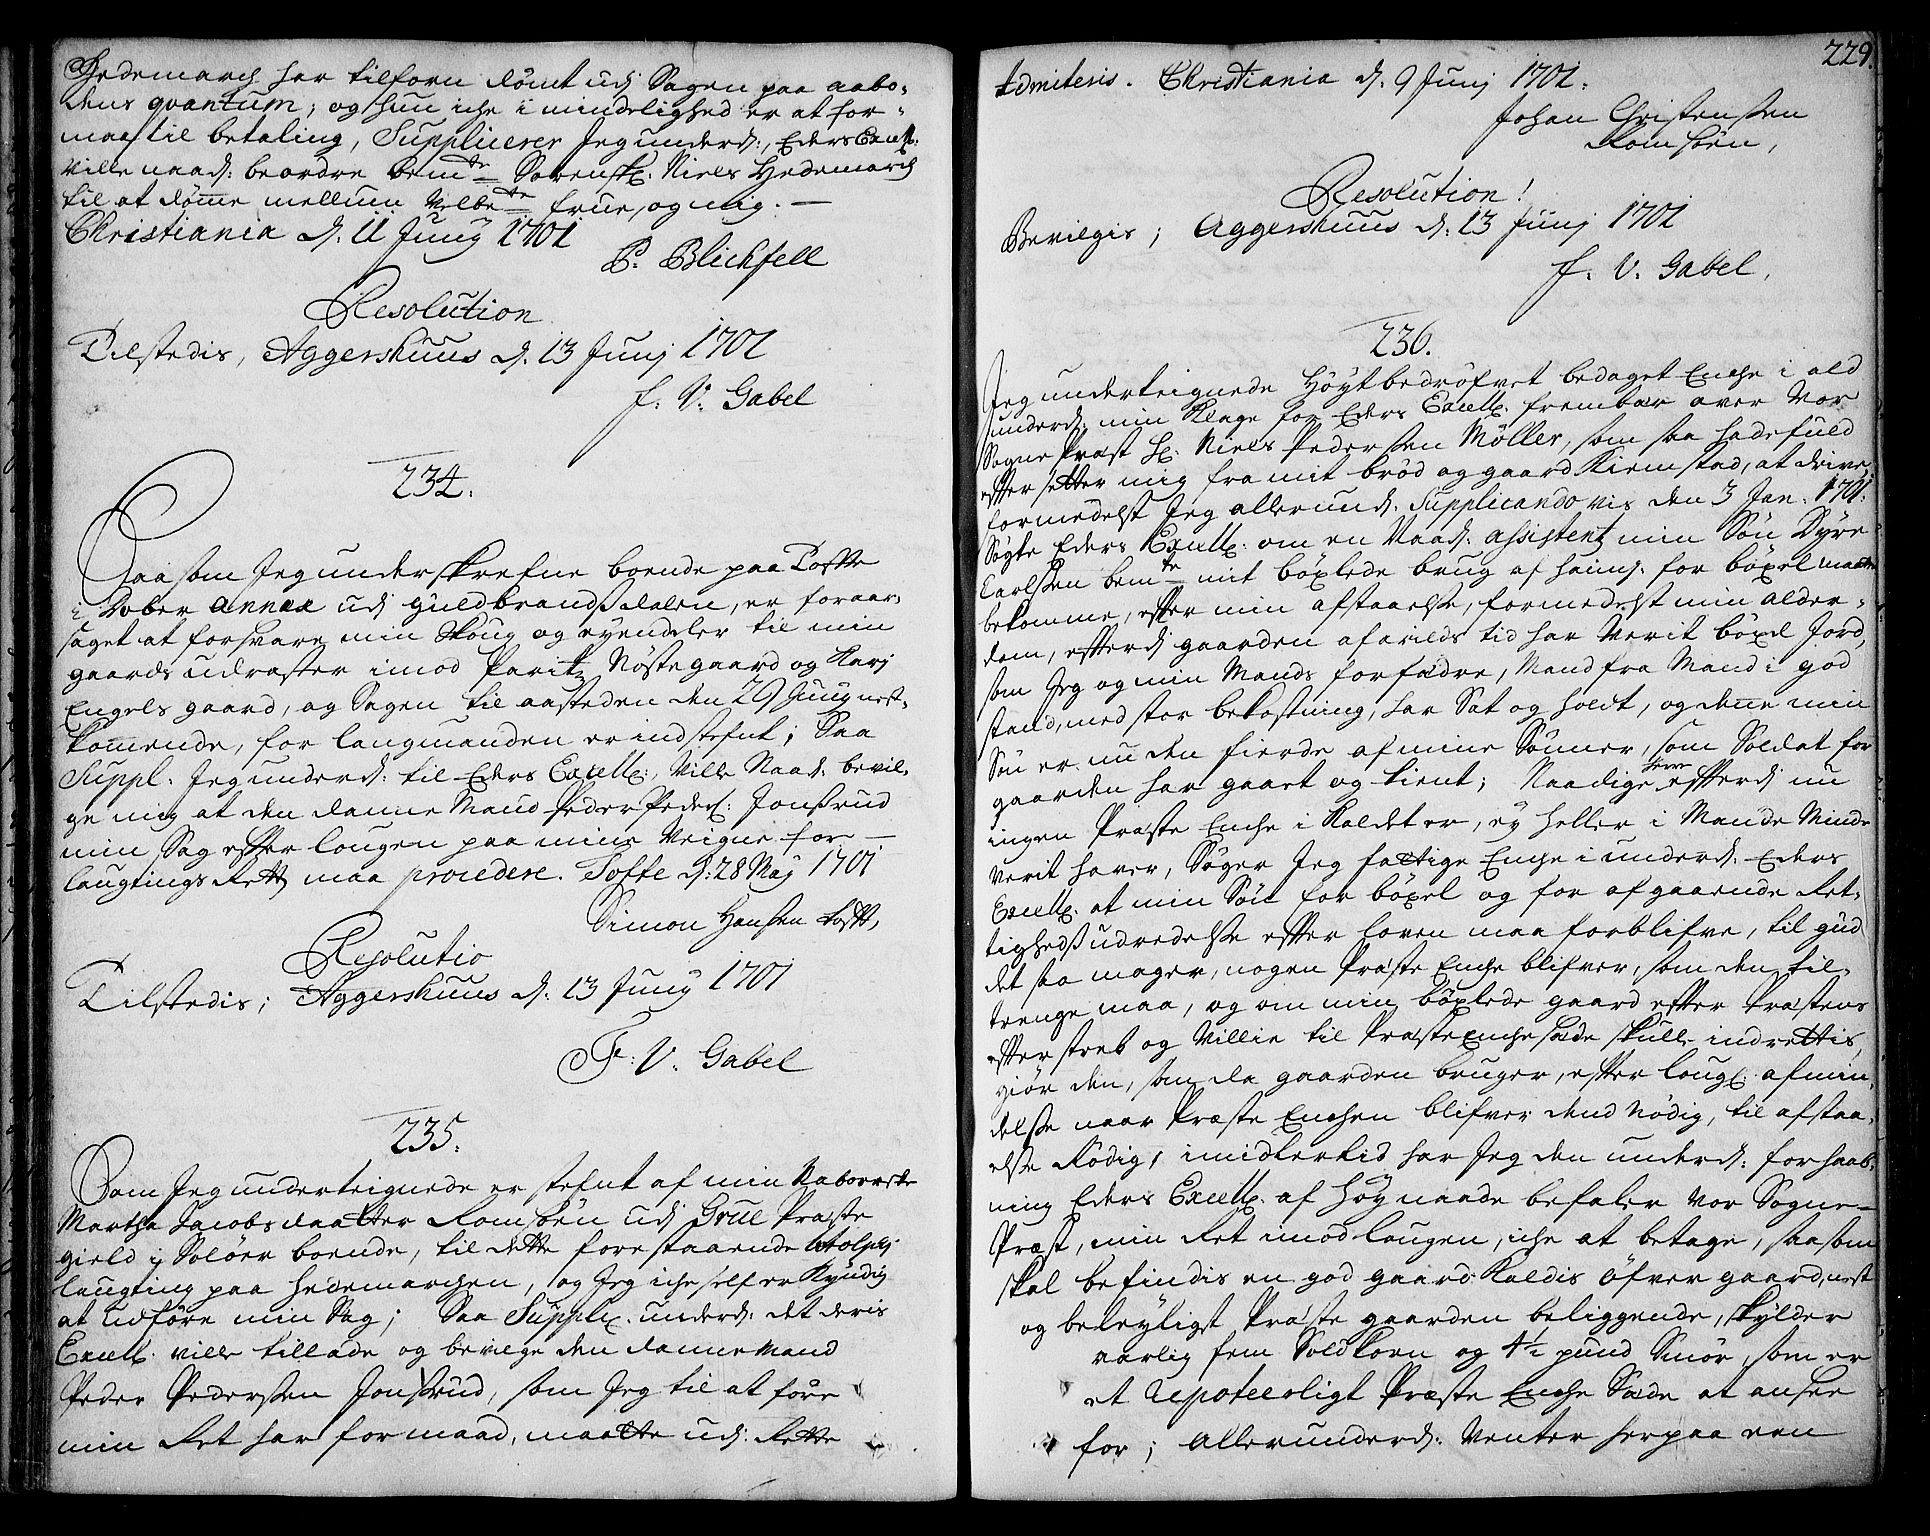 Hedemarch har tilforn dömt udj Sagen paa aabo-
dens qvantum; og hun iche i mindelighed er at for-
maa til betaling, Supplicerer Jeg underd:, Eders Excell:
ville naad: beordre bem.te Sorenskr: Niels Hedemarch
til at dömme mellum Velbe.te frue, og mig. —
Christiania d. 11 Junÿ 1701
P. Blichfell
Resolution
Tilstedis, Aggershuus d. 13 Junj 1701
f. V. Gabel
234.
Saasom Jeg underskrefne boende paa Tofte
i Dober annex udj guldbrandsdalen, er foraar-
saget at forsvare min Skoug og eyendeler til min
gaards udraster imod Paritz Nöstegaard og Karj
Engels gaard, og Sagen til aasteden den 29 Junÿ nest-
kommende, for laugmanden er indstefnt; Saa
Suppl: Jeg underd: til Eders Excell:, Ville Naad: bevil-
ge mig at den danne Mand Peder Peders: Jonsrud
min Sag efter lougen paa mine Veigne for —
laugtings Rett maa procedere. Tofte d: 28 Maj 1701
Simon Hansen Toft,
Resolutio
Tilstedis; Aggershuus d. 13 Junÿ 1701
F. V. Gabel
235.
Som Jeg underteignede er stefnt af min Naboerske
Martha Jacobsdaatter Romsöen udj Grue Præste
gield i Solöer boende, til dette forestaaende
laugting paa hedemarchen, og Jeg iche self er Kyndig
at udföre min Sag; Saa Supplic: underd: det deris
Excell: ville tillade og bevilge den danne Mand
Peder Pedersen Jonsrud, som Jeg til at före
min Ret har formaad, maatte udj Rette
229.
admiteris. Christiania d. 9 Junj 1701.
Johan Christensen
Romsöen,
Resolution!
Bevilgis; Aggershuus d. 13 Junj 1701
f. V. Gabel,
236.
Jeg underteignede Höytbedröfvet bedaget Enche i ald
underd: min Klage for Eders Excell: frembær over Vor
Sogne Præst Hr: Niels Pedersen Möller, som saa hadefuld
efter setter mig fra mit bröd og gaard Kiemstad, at drive,
formedelst Jeg allerund: Supplicando vis den 3 Jan. 1701.
Sögte Eders Excell: om en Naad: assistentz min Sön Dyre
Carlsen bem.te mit böxlede brug af hannj: for böxel maatte
bekomme, efter min afstaaelse, formedelst min alder-
dom, efterdj gaarden afarilds tid har Verit böxel Jord,
som Jeg og min Mands forfædre, Mand fra Mand i god
stand, med stor bekostning, har Sat og holdt, og denne min
Sön er nu den fierde af mine Sönner, som Soldat for
gaarden har gaaet og tient; Naadige Herre efterdj nu
ingen Præste Enche i Kaldet er, ey heller i Mande Minde
Verit haver, Söger Jeg fattige Enche i underd: Eders
Excell: at min Sön for böxel og for afgaaende Ret-
tigheds udredelse efter loven maa forblifve, til gud
det saa mager, nogen Præste Enche blifver, som den til-
trenge maa, og om min böxlede gaard efter Præstens
efterstreb og Villie til Præste Enche Sæde skulle indrettis,
giör den, som da gaarden bruger, efter loug: afmin-
delse naar Præste Enchen blifver dend nödig, til afstaa-
else Rödig, imidlertid har Jeg den underd: forhaab-
ning Eders Excell: af höy naade befaler Vor Sogne-
Præst, min Ret imod lougen, iche at betage, saasom
skal befindis en god gaard Kaldis Öfver gaard, nest
og beleyligst Præste gaarden beliggende, skylder
aarlig fem Sold korn og 4½ pund Smör, som er
et Præste Enche Sæde at ansee
for; allerunderd: Venter herpaa een